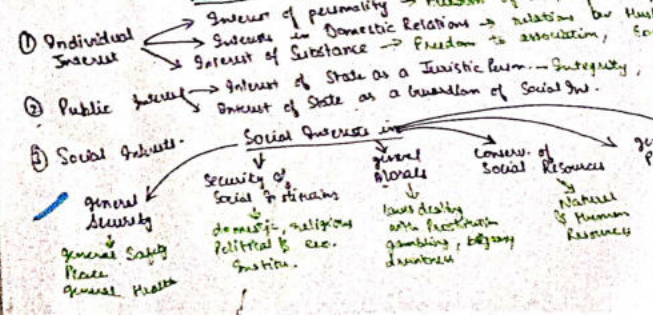 ① Individual Interest
→ Interest of personality → Freedom of
→ Interests in Domestic Relations → relations bw Hus
→ Interest of Substance → Freedom to association,
② Public Interest
→ Interest of State as a Juristic Person - Integrity,
→ Interest of State as a Guardian of Social Int.
③ Social Interests.
Social Interests in
General Security
General Safety
Peace
General Health
Security of Social Institutions
domestic, religious
Political & eco.
Institu.
General Morals
laws dealing
with Prostitution
gambling,
drunkness
Conserv. of Social Resources
Natural
& Human
Resources